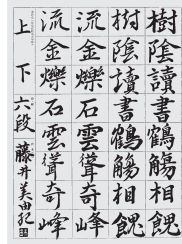 樹陰讀書鶴觴相餽
樹陰讀書鶴觴相餽
流金爍石雲聳奇峰
流金爍石雲聳奇峰
上下 六段 藤井美由紀